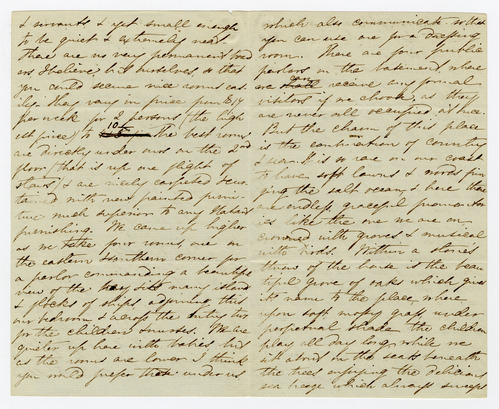 & servants & yet small enough
to be quiet & extremely neat.
There are no very permanent board
ers I believe, but ourselves, so that
you could secure nice rooms eas
ily. They vary in price from
per week for 2 persons (the high
est price) to 10 the best rooms
are directly under ours on the 2nd
floor, that is up one flight of
stairs, & are nicely carpeted & cur
tained with new painted furni
ture much superior to any
furnishing. We came up higher
as we take four rooms, one on
the eastern & southern corner for
a parlor commanding a beautiful
view of the bay with many islands
& flocks of ships adjoining this
our bedroom & across the entry two
for the children & nurses. We are
quieter up here with babies but
as the rooms are lower I think
you would prefer those under us
which also communicate so that
you can use one for a dressing
room. There are four public
parlors on the basement, where
we can receive any formal
visitors if we choose, as they
are never all occupied at once.
But the charm of this place
is the combination of country
& sea. It is so rare on our coast
to have soft lawns & woods frin
ging the salt ocean, & here there
are endless, graceful promonto
ries like the one we are on
crowned with groves & musical
with birds. Within a stone's
throw of the house is the beau
tiful grove of oaks which gives
its name to the place, where
upon soft mossy grass under
perpetual shade the children
play all day long, while we
sit about on the seats beneath
the trees enjoying the delicious
sea breeze which always sweeps